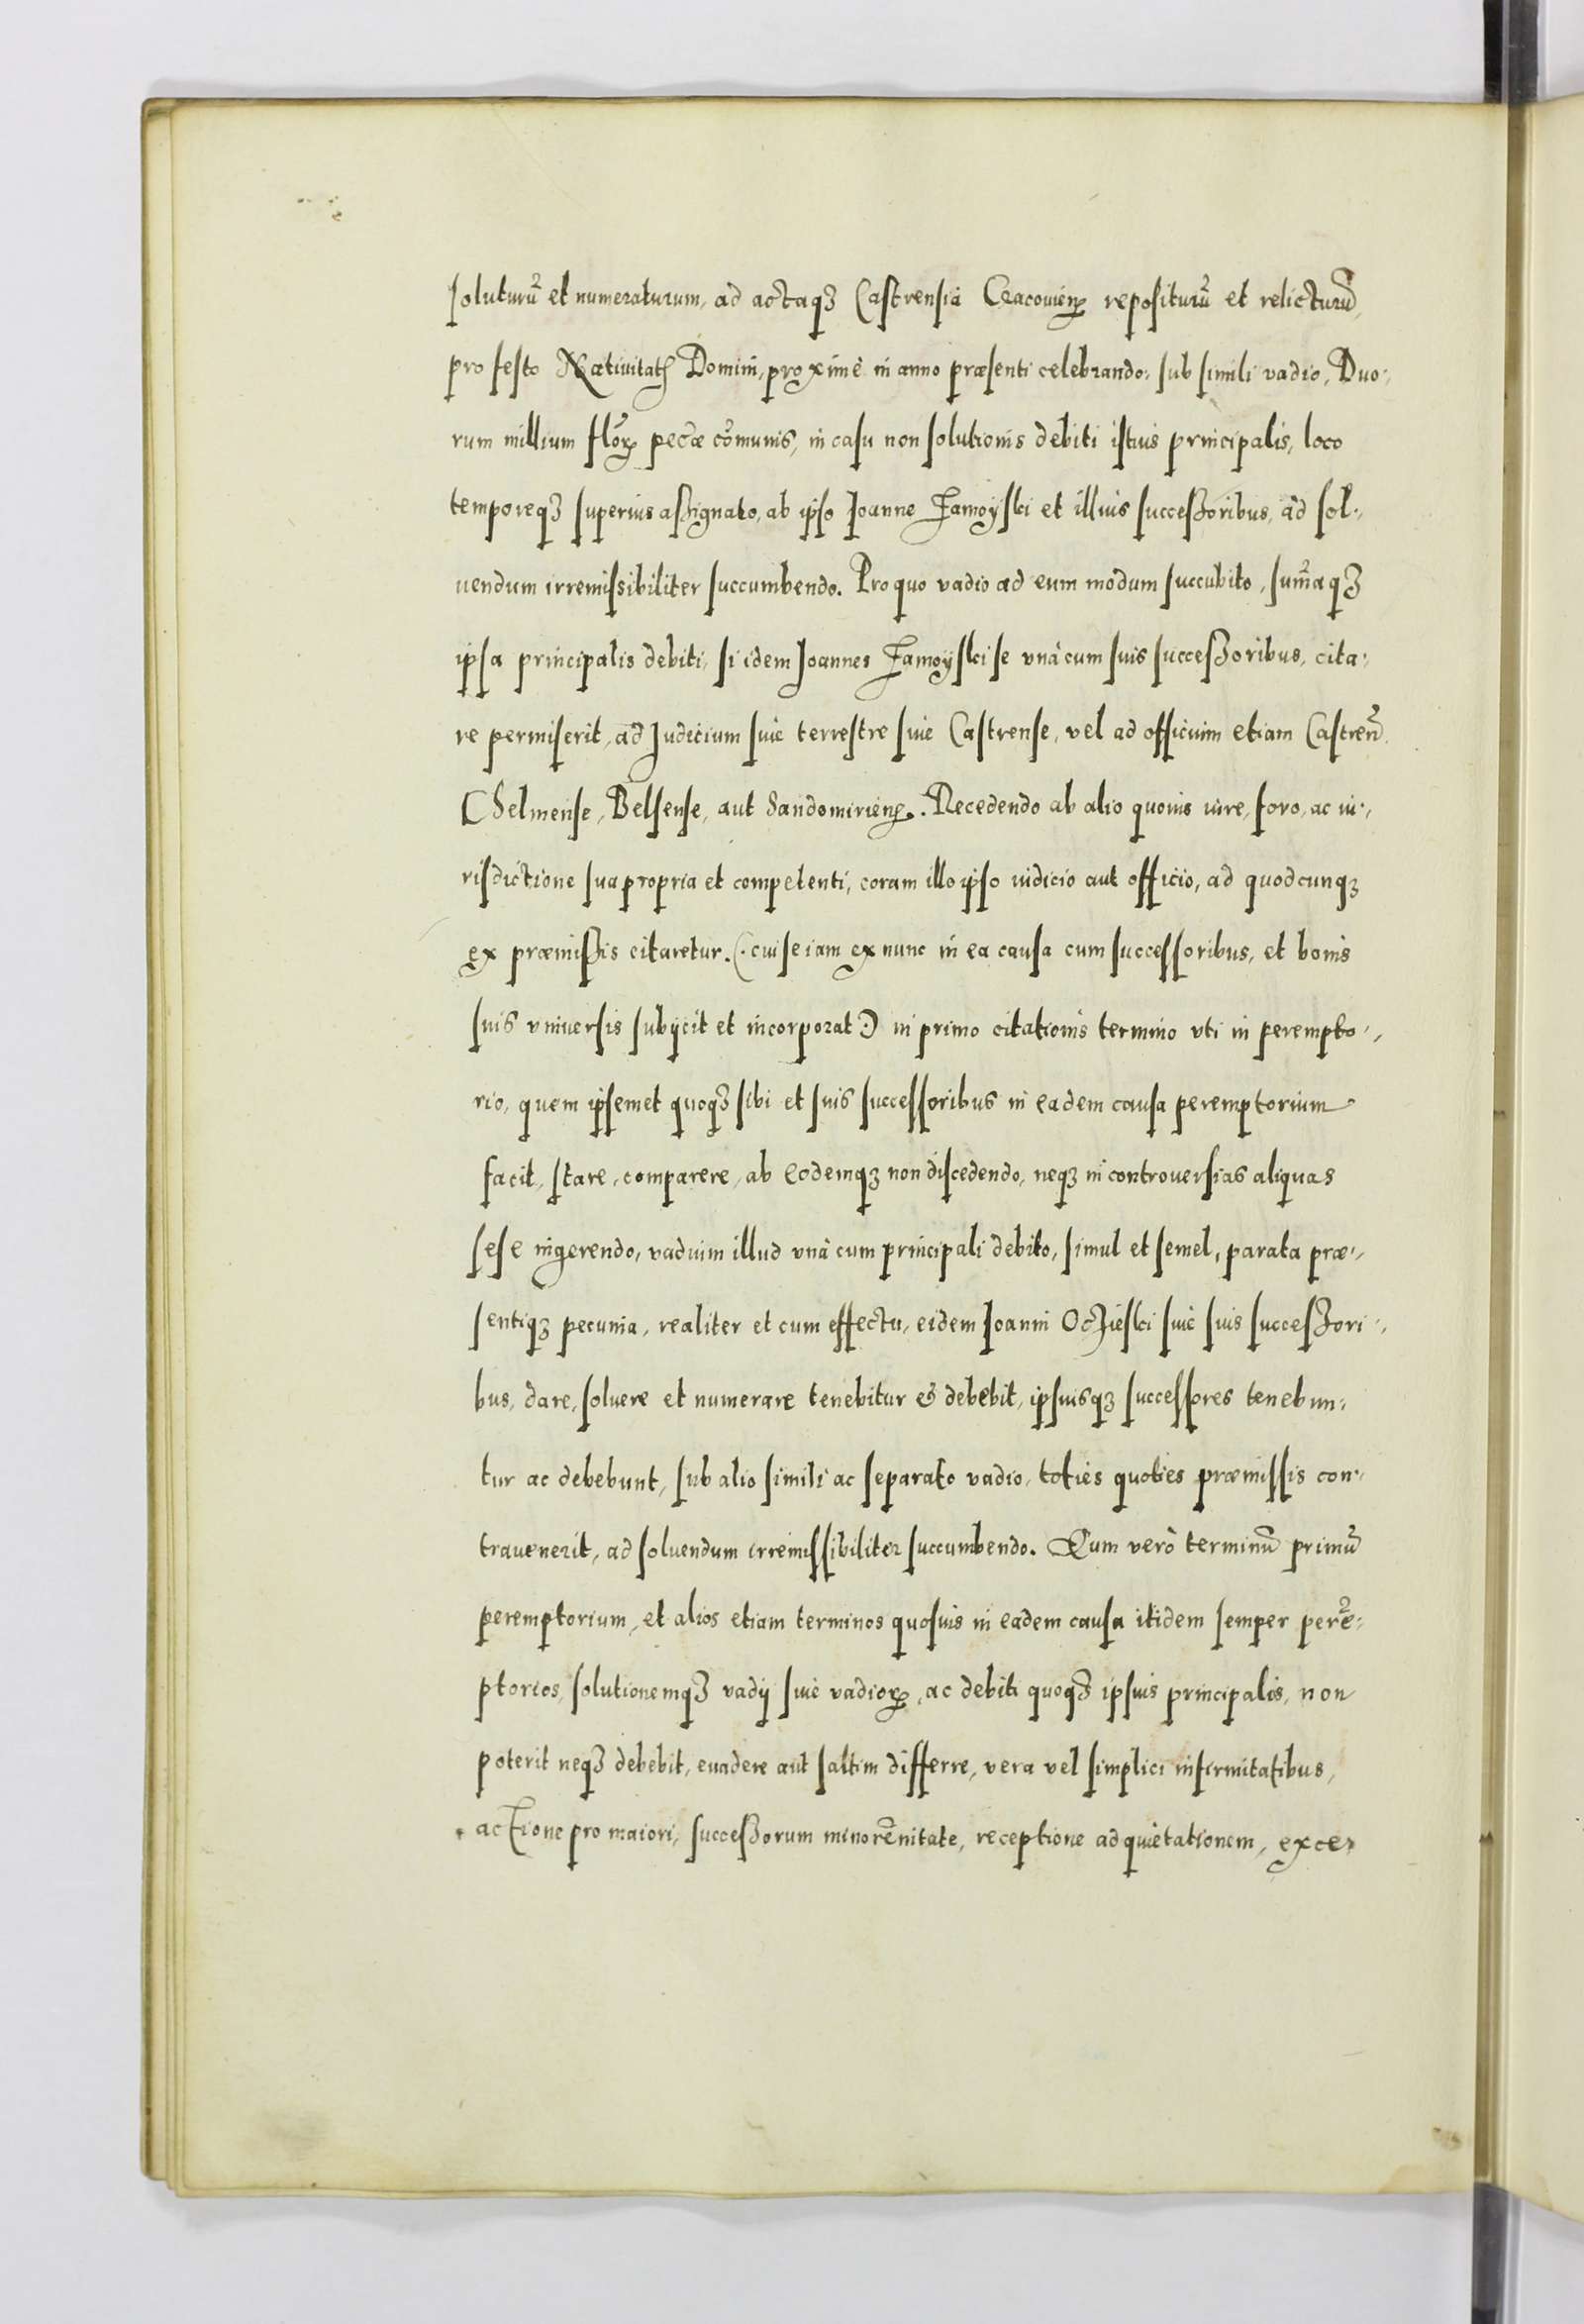 soluturũ et numeraturum, ad actaqꝫ Castrensia Cracovienꝭ repositurũ et relicturũ,
pro festo Natiuitatꝭ Domini, proximè in anno præsenti celebrando: sub simili vadio, Duo-
rum millium flõꝝ pecæ cõmunis, in casu non solutionis debiti istius principalis, loco
temporeqꝫ superius assignato, ab ipso Ioanne Zamoyski et illius successoribus, ad sol-
uendum irremissibiliter succumbendo. Pro quo vadio ad eum modum succubito, sum̃aqꝫ
ipsa principalis debiti, si idem Ioannes Zamoyski se vnà cum suis successoribus, cita-
re permiserit, ad Iudicium siue terrestre siue Castrense, vel ad officium etiam Castren̄.
Chelmense, Belsense, aut Sandomirienꝭ. Recedendo ab alio quouis iure, foro, ac iu-
risdictione sua propria et competenti, coram illo ipso iudicio aut officio, ad quodcunqꝫ
ex præmissis citaretur. (: cui se iam ex nunc in ea causa cum successoribus, et bonis
suis vniuersis subijcit et incorporat :) in primo citationis termino vti in perempto-
rio, quem ipsemet quoqꝫ sibi et suis successoribus in eadem causa peremptorium
facit, stare, comparere, ab eodemqꝫ non discedendo, neqꝫ in controuersias aliquas
sese ingerendo, vadium illud vnà cum principali debito, simul et semel, parata præ-
sentiqꝫ pecunia, realiter et cum effectu, eidem Ioanni Oczieski siue suis successori-
bus, dare, soluere et numerare tenebitur & debebit, ipsiusqꝫ successores tenebun-
tur ac debebunt, sub alio simili ac separato vadio, toties quoties præmissis con-
trauenerit, ad soluendum irremissibiliter succumbendo. Cum verò terminũ primũ
peremptorium, et alios etiam terminos quosuis in eadem causa itidem semper perẽ-
ptorios, solutionemqꝫ vadij siue vadioꝝ, ac debiti quoqꝫ ipsius principalis, non
poterit neqꝫ debebit, euadere aut saltim differre, vera vel simplici infirmitatibus,
actione pro maiori, successorum minorẽnitate, receptione ad quietationem, exce-